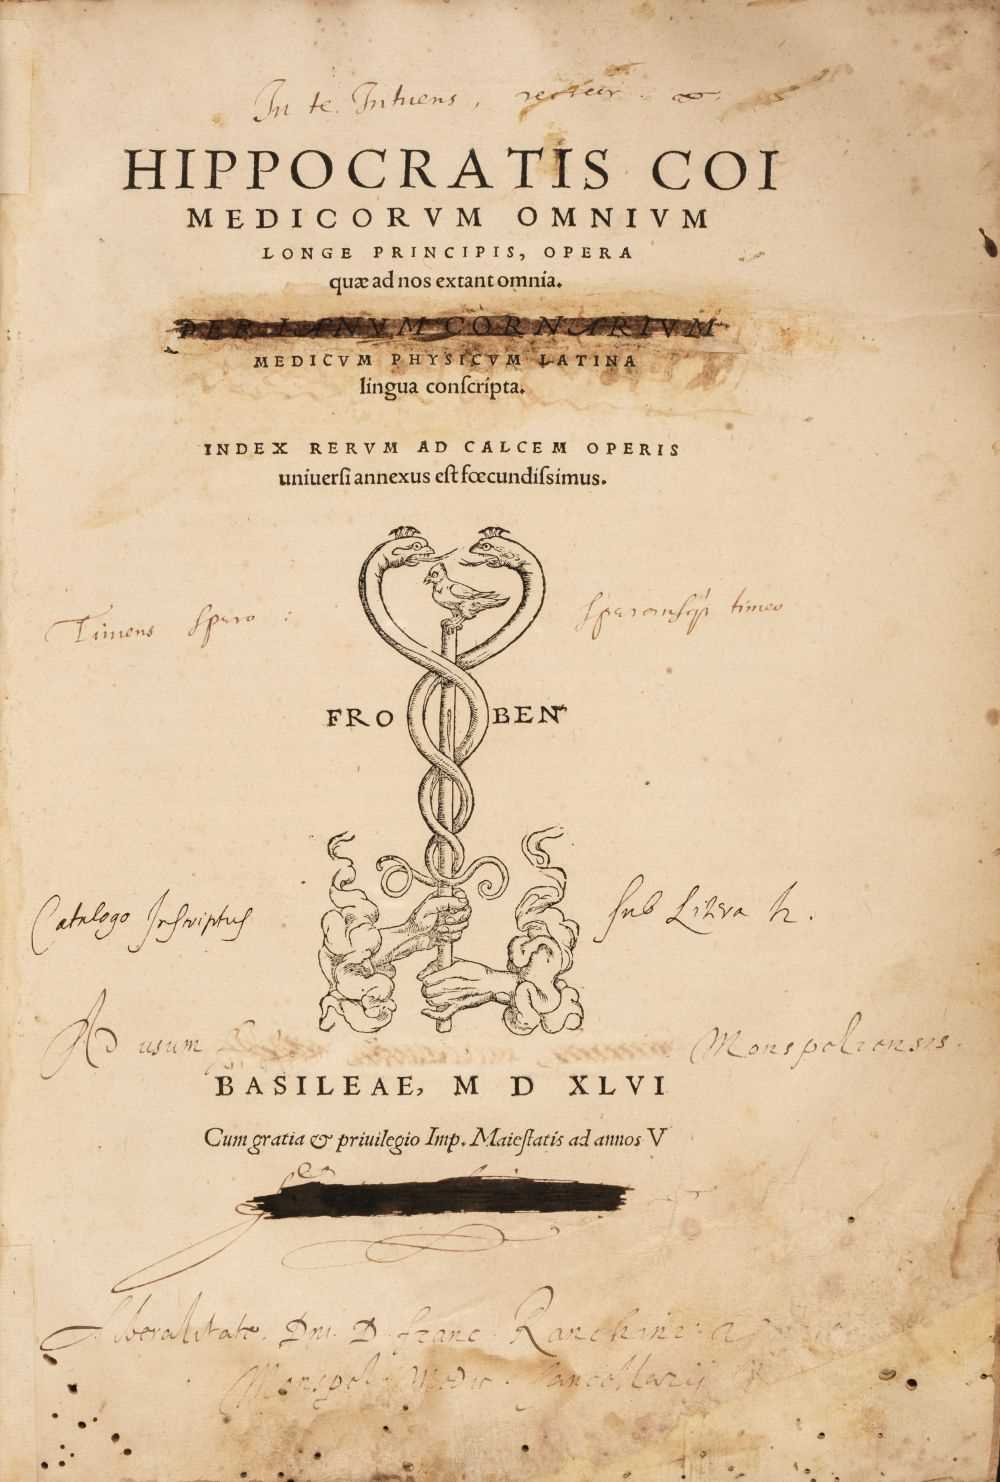 In te Intuens,
HIPPOCRATIS COI
MEDICORVM OMNIVM
LONGE PRINCIPIS, OPERA
quæ ad nos extant omnia.
PER IANVM CORNARIVM
MEDICVM PHYSICVM LATINA
lingua conſcripta.
INDEX RERVM AD CALCEM OPERIS
uniuerſi annexus eſt fœcundiſsimus.
Timens spero : timeo
FRO BEN
Catalogo Inscriptus sub Litera h.
Ad usum Monspeliensis.
BASILEAE, M D XLVI
Cum gratia & priuilegio Imp. Maieſtatis ad annos V
liberalitate Dni D. franc. Ranchini
Monspel